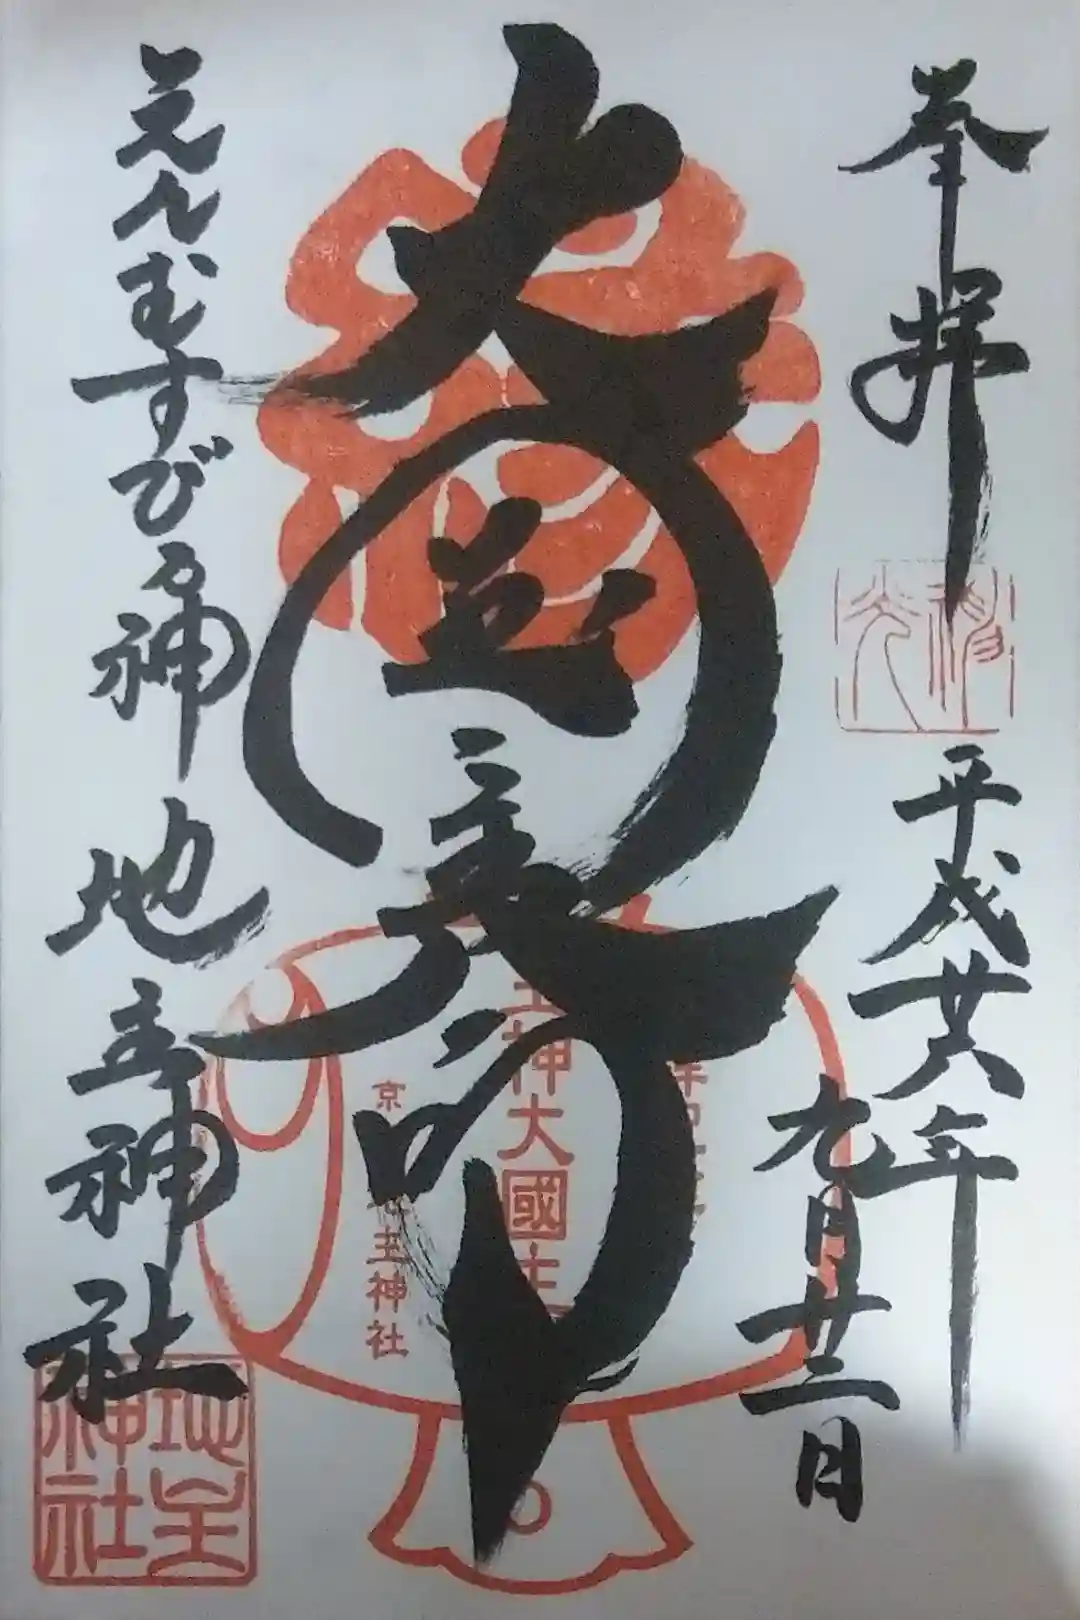 奉拝
平成廿六年
九月廿三日
大国主命
えんむすびの神
地主神社
主神大國
京
主神社
地主
神社